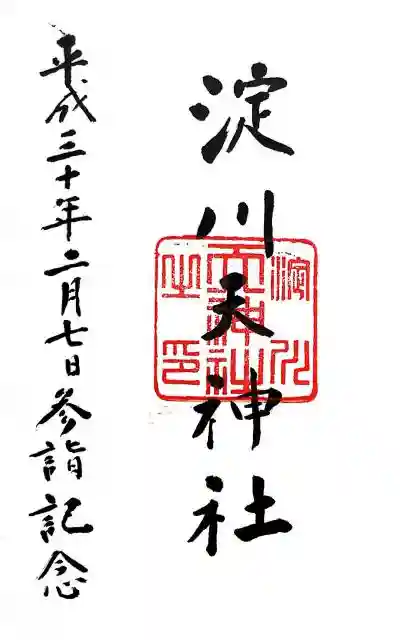 淀川天神社
淀川
天神社
之印
平成三十年二月七日参詣記念